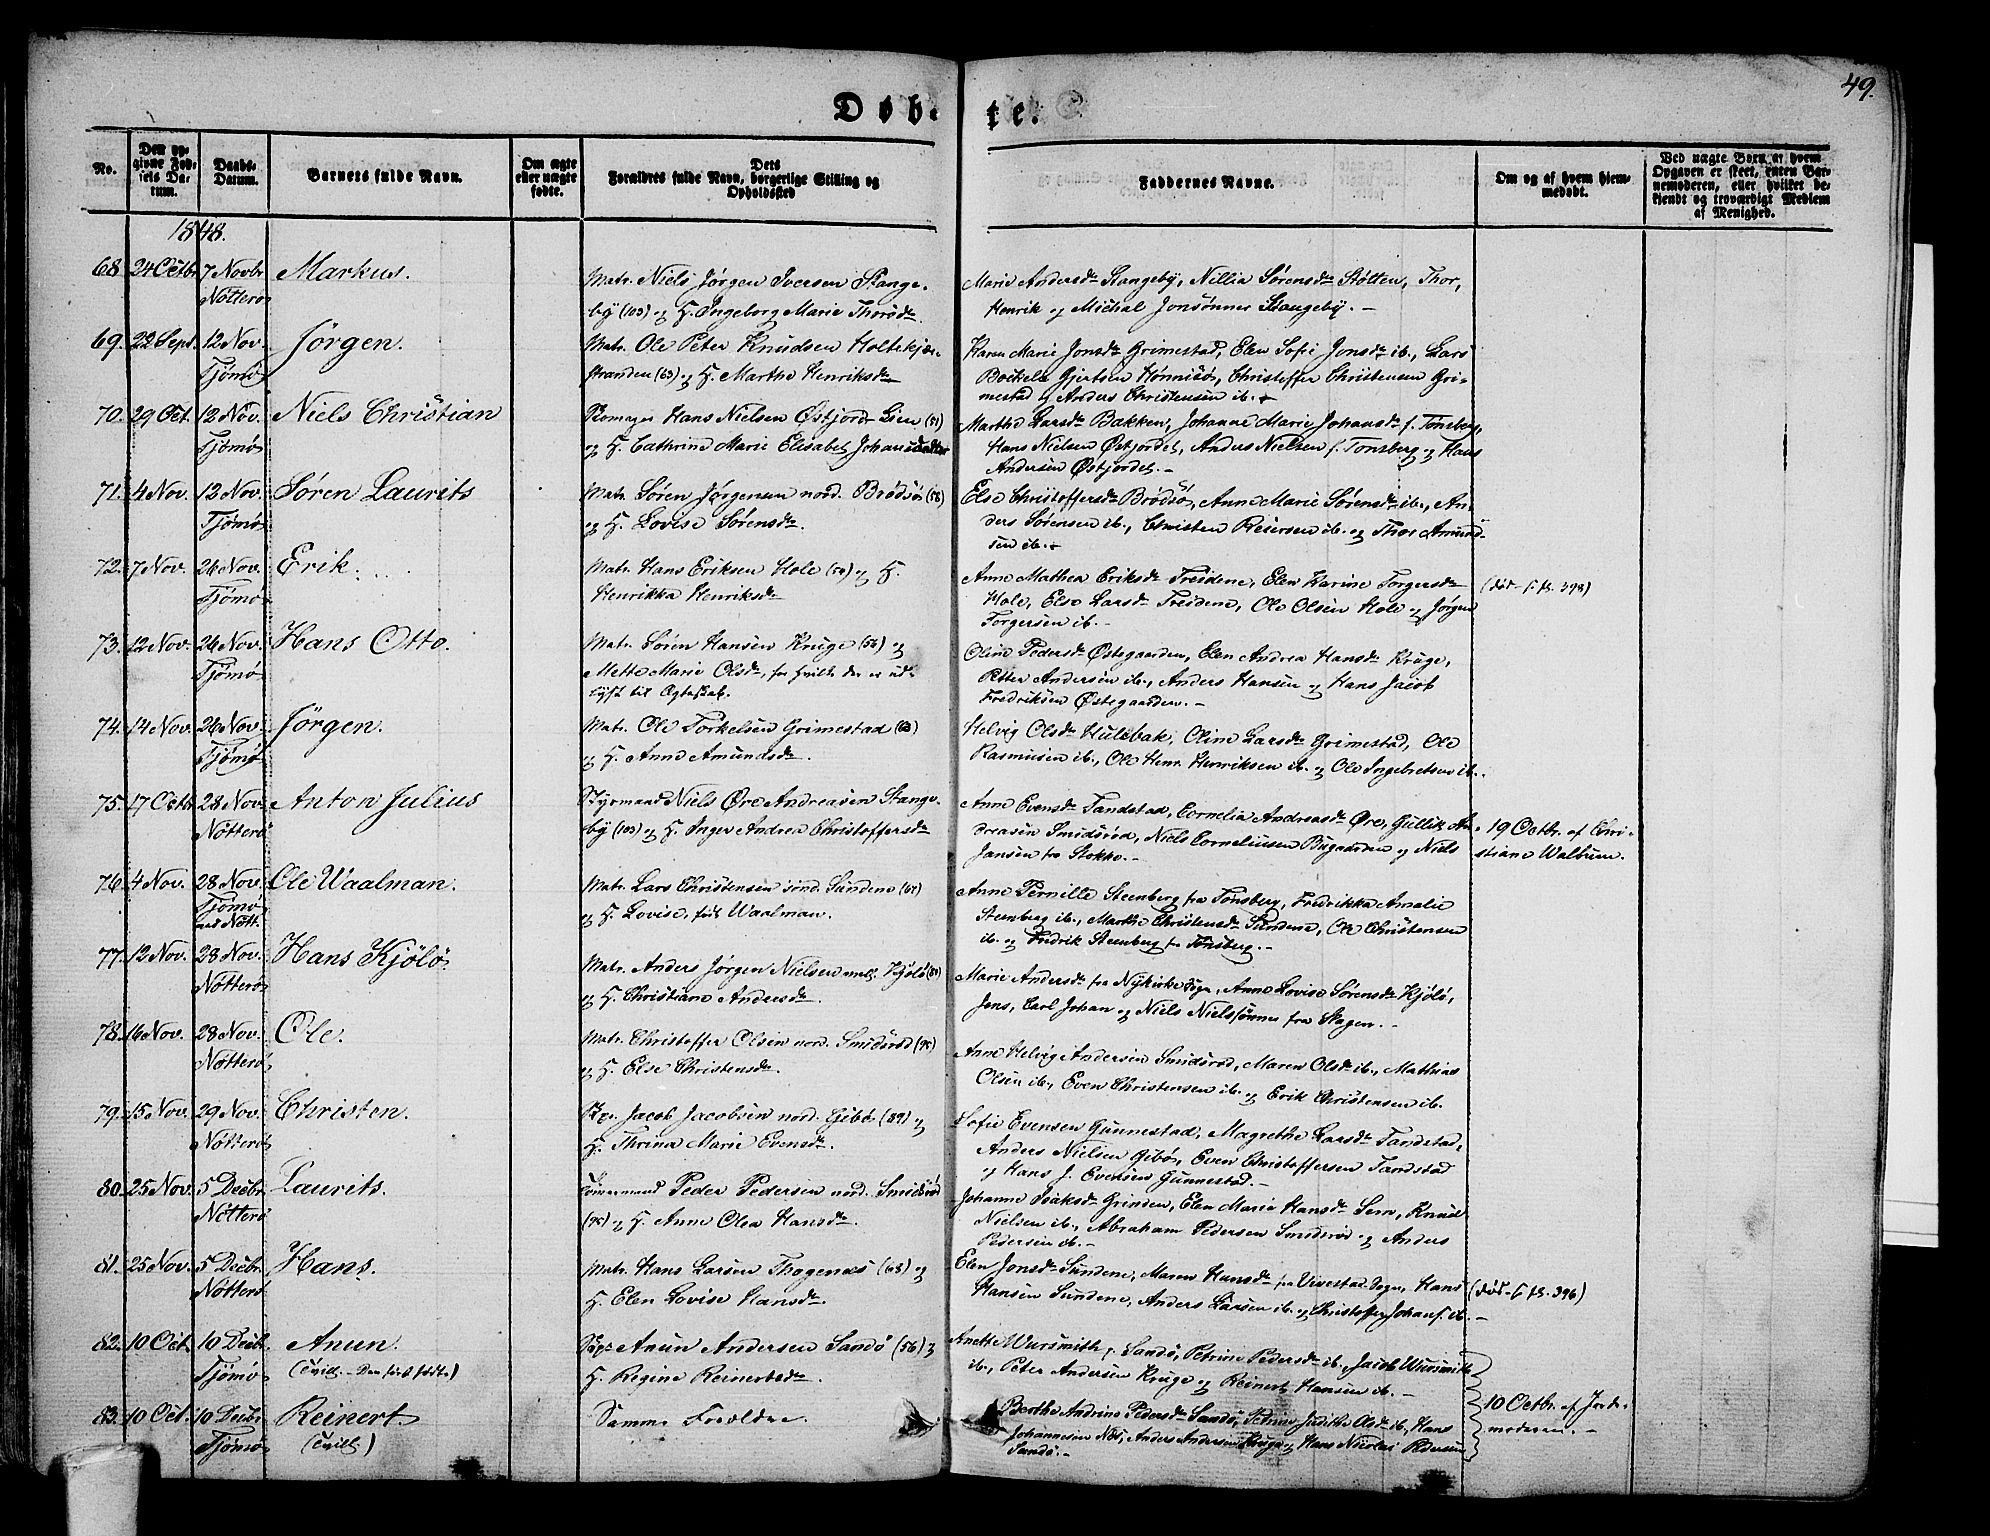 49.
Døbte.
No.
Den op-
givne Fød-
sels Da-
tum.
Daabs-
Datum.
Barnets fulde Navn.
Om ægte
eller uægte
fødte.
Forældres fulde Navn, borgerlige Stilling og
Dets
Opholdssted
Faddernes Navne.
Om og af hvem hjem-
medøbt.
Ved uægte Børn af hvem
Opgaven er skeet, enten Bar-
nemoderen, eller hvilket be-
kjendt og troværdigt Medlem
af Menighed.
1848.
68. 24 Octbr. 7 Novbr. Markus.
Nötterö
Matr. Niels Jørgen Iversen Stange-
by (103) og H. Ingeborg Marie Thorsdr.
Marie Andersdr Stangeby, Nillia Sørensdr Stølten, Thor,
Henrik og Michal Jonsönner Stangeby. -
69. 22 Sept. 12 Nov. Jörgen.
Tjömö
Matr. Ole Peter Knudsen Holtekjær-
stranden (63) og H. Marthe Henriksdr
Karen Marie Jonsdr Grimestad, Elen Sofie Jonsdr ib., Lars
Bockelo Gjertsen Hönnisö, Christoffer Christensen Gri-
mestad og Anders Christensen ib. -
70. 29 Oct. 12 Nov. Niels Christian
Tjömö
Hans Nielsen Østjordr Lien (51)
og H. Cathrine Marie Elisabet
Marthe Larsdr Bakken, Johanne Marie Johansdr f. Tönsberg,
Hans Nielsen Østjordet, Anders Nielsen f. Tonsberg og Hans
Andersen Østjordet. -
71. 4 Nov. 12 Nov. Sören Laurits
Tjömö
Matr. Sören Jørgensen nord. Brödsö (58)
og H. Lovise Sörensdr.
Else Christoffersdr Brödsö, Anne Marie Sörensdr ib., An-
ders Sörensen ib., Christen Reiersen ib. og Thor Amund-
sen ib. -
72. 7 Nov. 26 Nov. Erik.
Tjömö
Matr. Hans Eriksen Hole (50) og H.
Henrikka Henriksdr
Anne Mathea Eriksdr Treidene, Elen Karine Torgersdr
Hole, Else Larsdr Treidene, Ole Olsen Hole og Jörgen
Torgersen ib. -
(död - S. pag. 398)
73. 12 Nov. 26 Nov. Hans Otto.
Tjömö
Matr. Sören Hansen Kruge (56) og
Mette Marie Olsdr, for hvilke der er ud-
lyst til Ægteskab.
Oline Pedersdr Östegaarden, Elen Andrea Hansdr Kruge,
Petter Andersen ib., Anders Hansen og Hans Jacob
Fredriksen Östegaarden. -
74. 14 Nov. 26 Nov. Jörgen.
Tjömö
Matr. Ole Torkelsen Grimestad (62)
og H. Anne Amundsdr.
Helvig Olsdr Hulebak, Oline Larsdr Grimestad, Ole
Rasmusen ib., Ole Henr. Henriksen ib. og Ole Ingebretsen ib. -
75. 17 Octb. 28 Nov. Anton Julius
Nötterö
Styrmand Niels Øre Andreasen Stange-
by (103) og H. Inger Andrea Christoffersdr
Anne Evensdr Tandstad, Cornelia Andreasdr Øre, Gullik An-
dreasen Smidsröd, Niels Corneliusen Bugaarden og Niels
Jansen fra Stokke. -
19 Octbr. af Chri-
stiane Walbum.
76. 4 Nov. 28 Nov. Ole Waalman.
Tjömö
ved Nött.
Matr. Lars Christensen sönd. Sundene (67)
og H. Lovise, föd Waalman.
Anne Pernille Steenberg fra Tönsberg, Fredrikka Amalie
Steenberg ib., Marthe Christensdr Sundene, Ole Christensen
ib. og Fredrik Steenberg fr. Tönsberg. -
77. 12 Nov. 28 Nov. Hans Kjölö
Nötterö
Matr. Anders Jörgen Nielsen mell. Kjölö (81)
og H. Christiane Andersdr.
Marie Andersdr fra Nykirke Sogn, Anne Lovise Sörensdr Kjölö,
Jens, Carl Johan og Niels Nielsönner fra Skagen. -
78. 16 Nov. 28 Nov. Ole.
Nötterö
Matr. Christoffer Olsen nord. Smidsröd (95)
og H. Else Christensdr.
Anne Helvig Andersen Smidsröd, Maren Olsdr ib., Mathias
Olsen ib., Even Christensen ib. og Erik Christensen ib.
79. 15 Nov. 29 Nov. Christen.
Nötterö
Jacob Jacobsen nord. Gibö (89) og
H. Thrina Marie Evensdr.
Sofie Evensen Gunnestad, Magrethe Larsdr Tandstad,
Anders Nielsen Gibö, Even Christoffersen Tandstad
og Hans J. Evensen Gunnestad. -
80. 25 Nov. 5 Decbr. Laurits.
Nötterö
Tömmermand Peder Pedersen nord. Smidsröd
(95) og H. Anne Olea Hansdr.
Johanne Isaksdr Grinden, Elen Maria Hansdr Sem, Knud
Nielsen ib., Abraham Pedersen Smidsröd og Anders
Pedersen ib. -
81. 25 Nov. 5 Decbr. Hans.
Nötterö
Matr. Hans Larsen Thogenæs (68) og
H. Elen Lovise Hansdr.
Elen Jonsdr Sundene, Maren Hansdr fra Vivestad Sogn, Hans
Hansen Sundene, Anders Larsen ib. og Christoffer Johans. ib. -
(död - S. pag. 396)
82. 10 Oct. 10 Decbr. Anun.
Tjömö (Tvill. - Den först födte)
Anun Andersen Sandö (56) og
H. Regine Reinertsdr.
Anette Wursmith f. Sandö, Petrine Pedersdr ib., Jacob Wursmith
ib., Peter Andersen Kruge og Reinert Hansen ib. -
83. 10 Oct. 10 Decbr. Reinert
Tjömö (Tvill.)
Samme Forældre.
Berthe Andrine Pedersdr Sandö, Petrine Judithe Olsdr ib., Hans
Johannesen Nös, Anders Andersen Kruge og Hans Nicolai Pedersen
Sandö. -
10 Octbr. af Jorde-
moderen. -